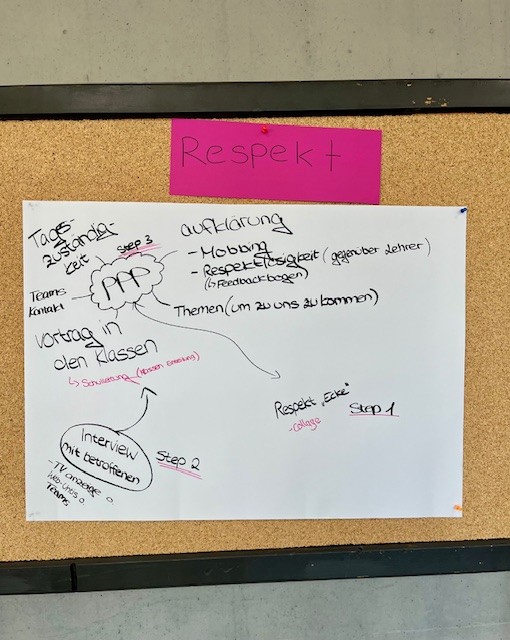 Respekt
Tages-
zuständig-
keit
Step 3
PPP
Teams
Kontakt
aufklärung
- Mobbing
- Respektlosigkeit (gegenüber Lehrer)
(↳ Feedbackbogen)
Themen (um zu uns zu kommen)
Vortrag in
den Klassen
↳ Schulleitung (Klassen
Respekt „Ecke"
- Collage
Step 1
Interview
mit betroffenen
Step 2
- TV anzeige o.
Web-Untis o.
Teams